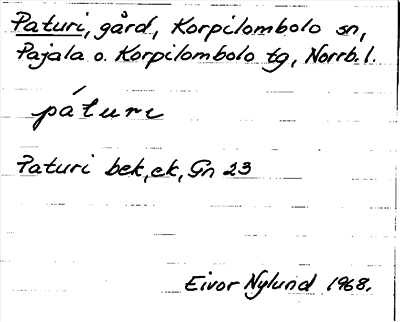 Paturi, gård, Korpilombolo sn,
Pajala o. Korpilombolo tg, Norrb. l.
páturi
Paturi bek, ek, Gn 23
Eivor Nylund 1968.